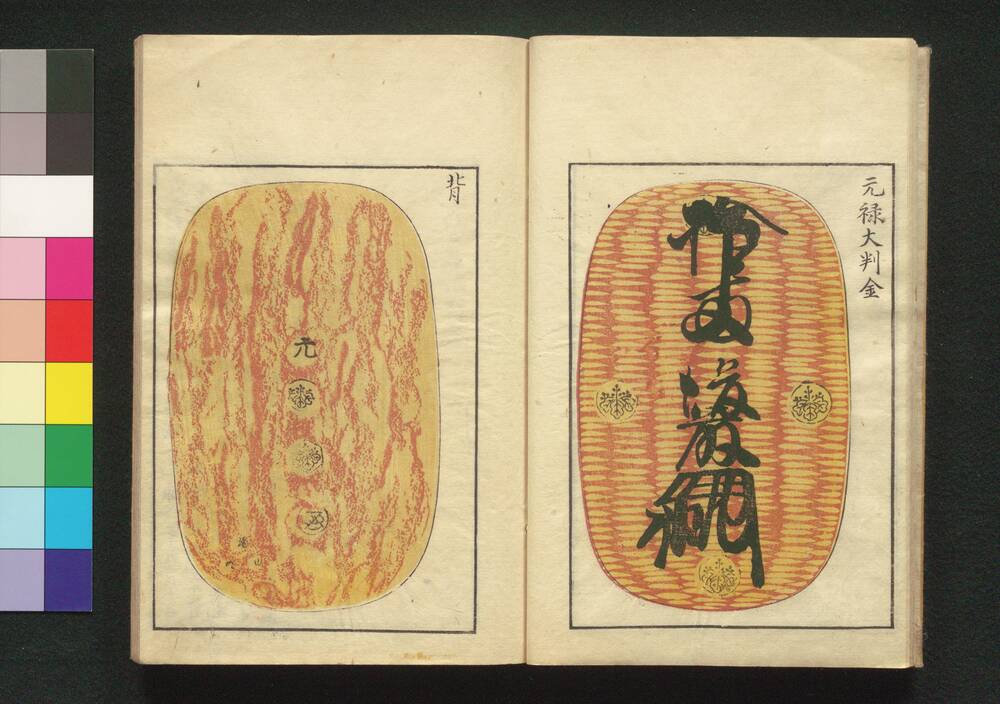 元禄大判金
拾両
後藤
背
元